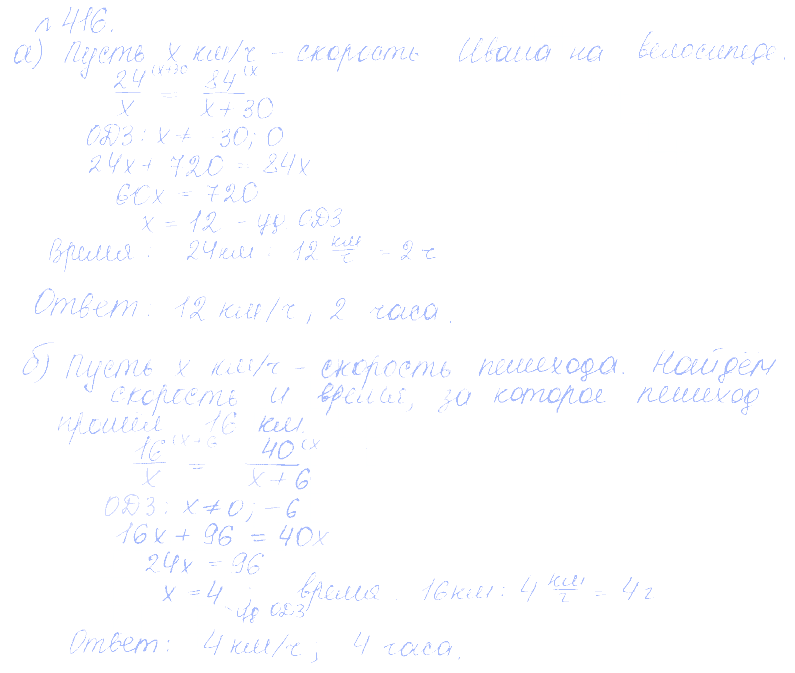 № 416.
а) Пусть x км/ч - скорость Ивана на велосипеде.
24(x+30 / x = 84(x / x + 30
ОДЗ: x ≠ -30; 0
24x + 720 = 84x
60x = 720
x = 12 - уд ОДЗ
Время: 24км : 12 км/ч = 2 ч
Ответ: 12 км/ч, 2 часа.
б) Пусть x км/ч - скорость пешехода. Найдём
скорость и время, за которое пешеход
прошел 16 км.
16(x+6 / x = 40(x / x + 6
ОДЗ: x ≠ 0; -6
16x + 96 = 40x
24x = 96
x = 4 - уд ОДЗ; время: 16км : 4 км/ч = 4 ч
Ответ: 4 км/ч, 4 часа.